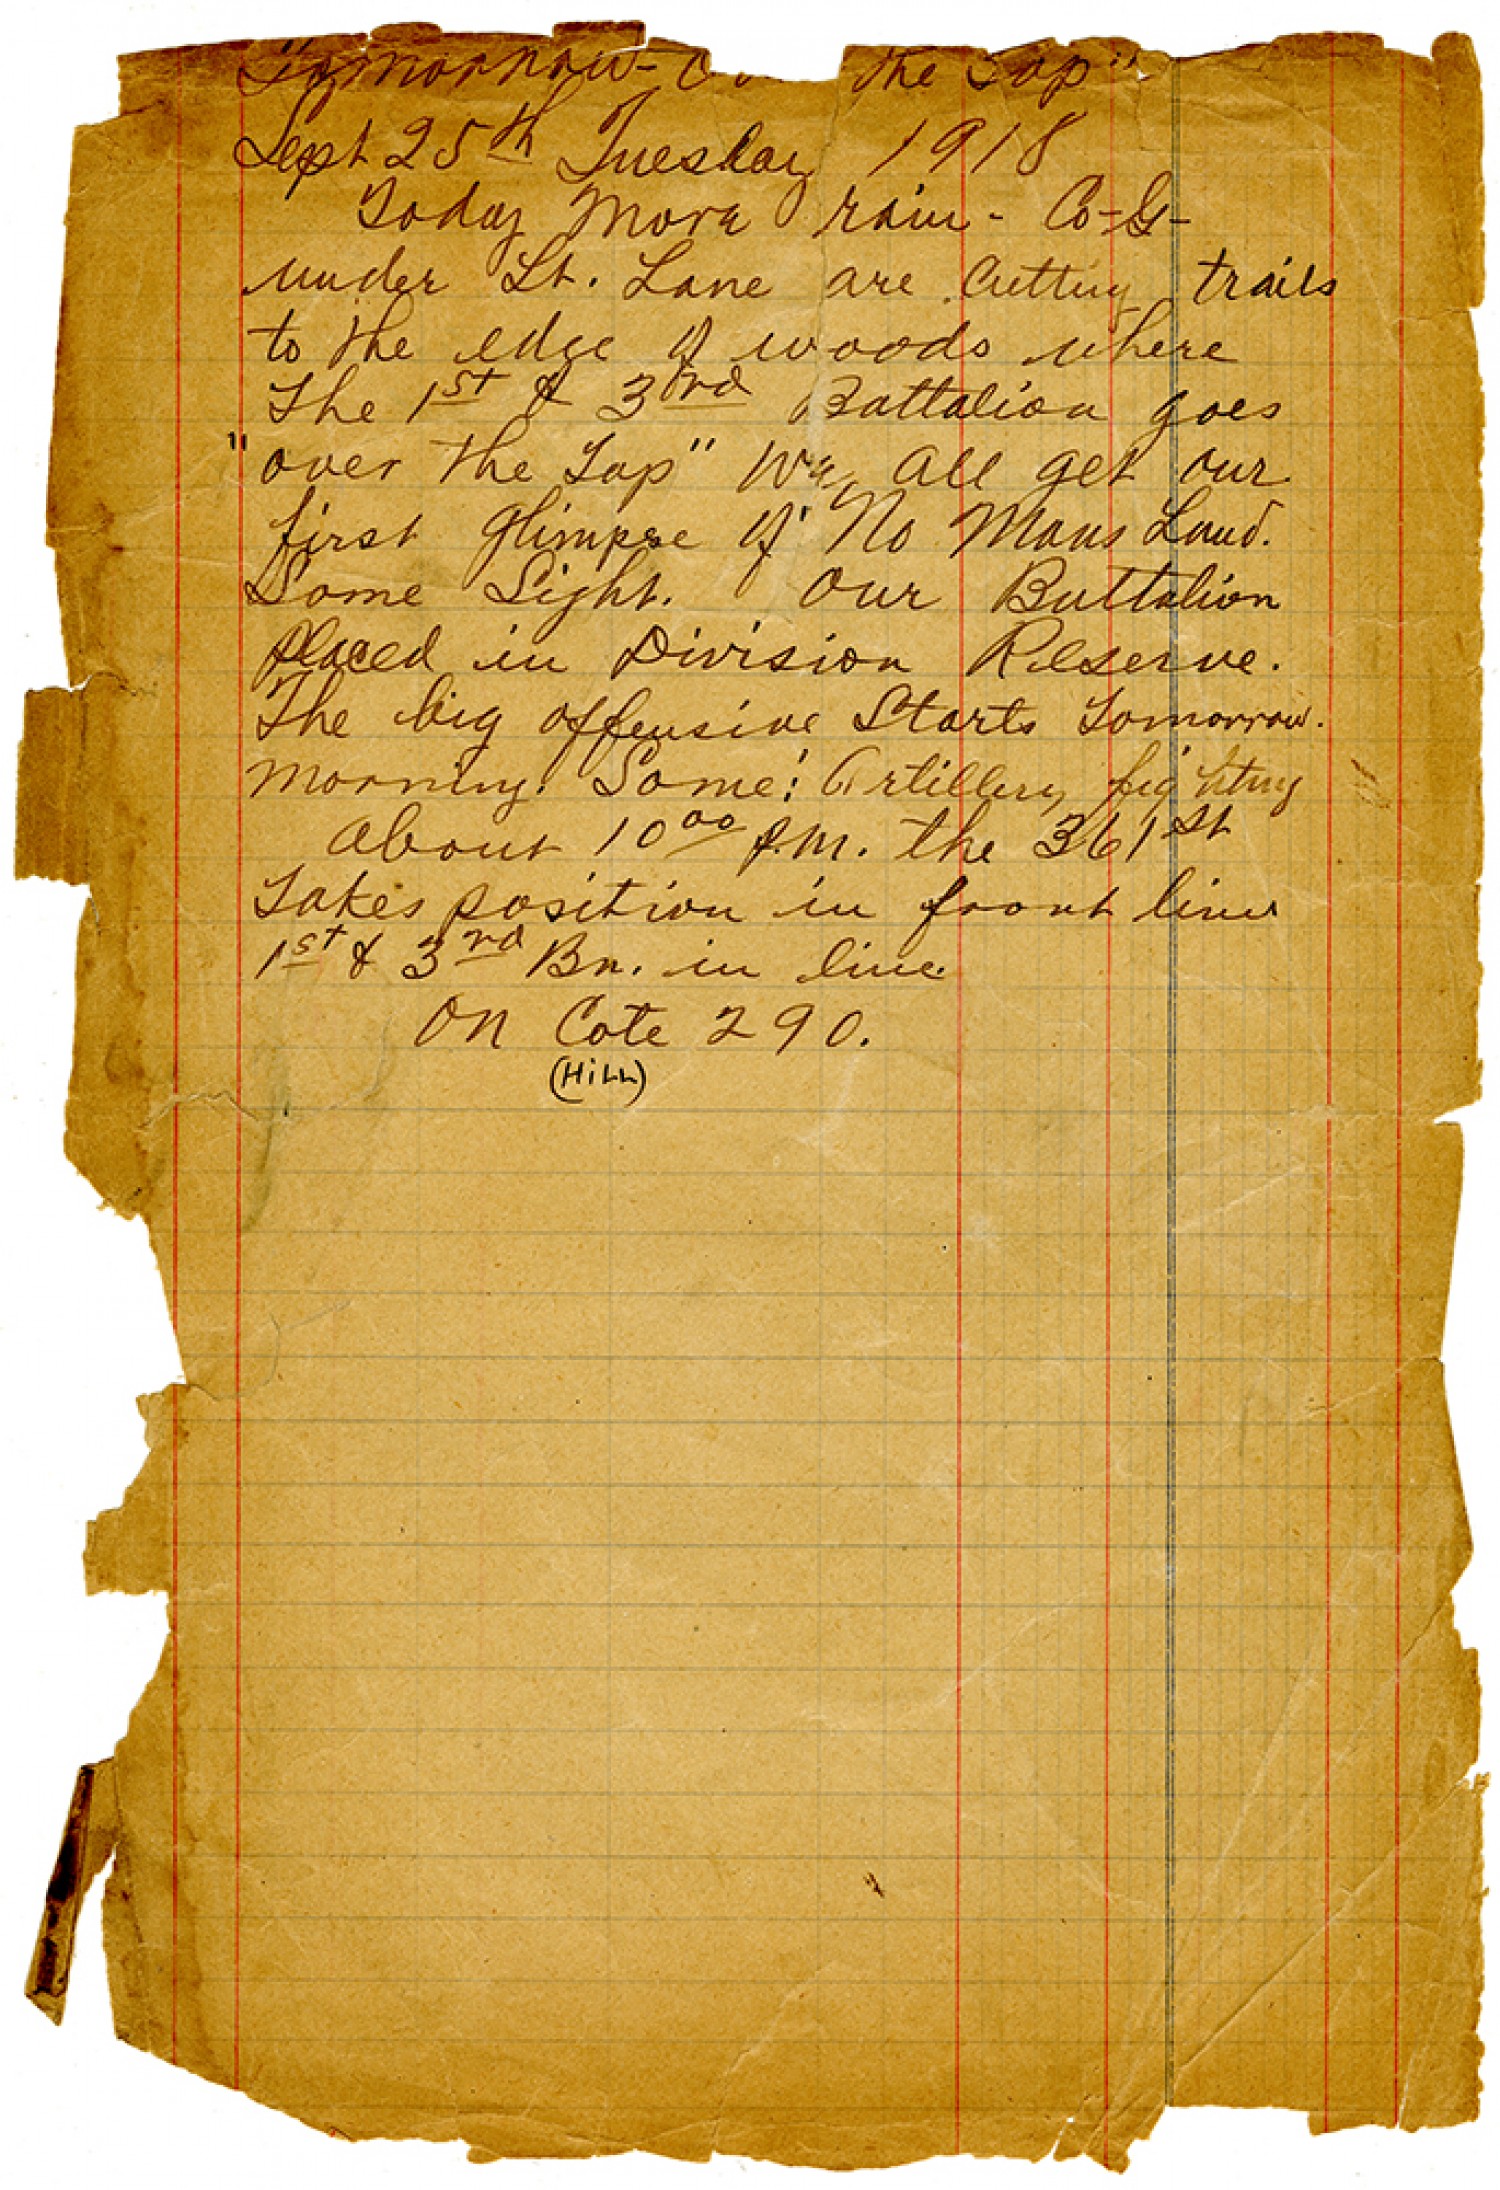 "Tomorrow- the Top"
Sept 25th Tuesday 1918
Today More rain - Co-G-
under Lt. Lane are Cutting trails
to the edge of woods where
The 1st & 3rd Battalion goes
"over the Top" We all get our
first glimpse of No Mans Land.
Some Sight. Our Battalion
placed in Division Reserve.
The big offensive Starts Tomorrow.
Morning. Some! Artillery fighting
about 10 00 P.M. the 361st
Takes position in front line
1st & 3rd Bn. in line.
ON Cote 290.
(HiLL)